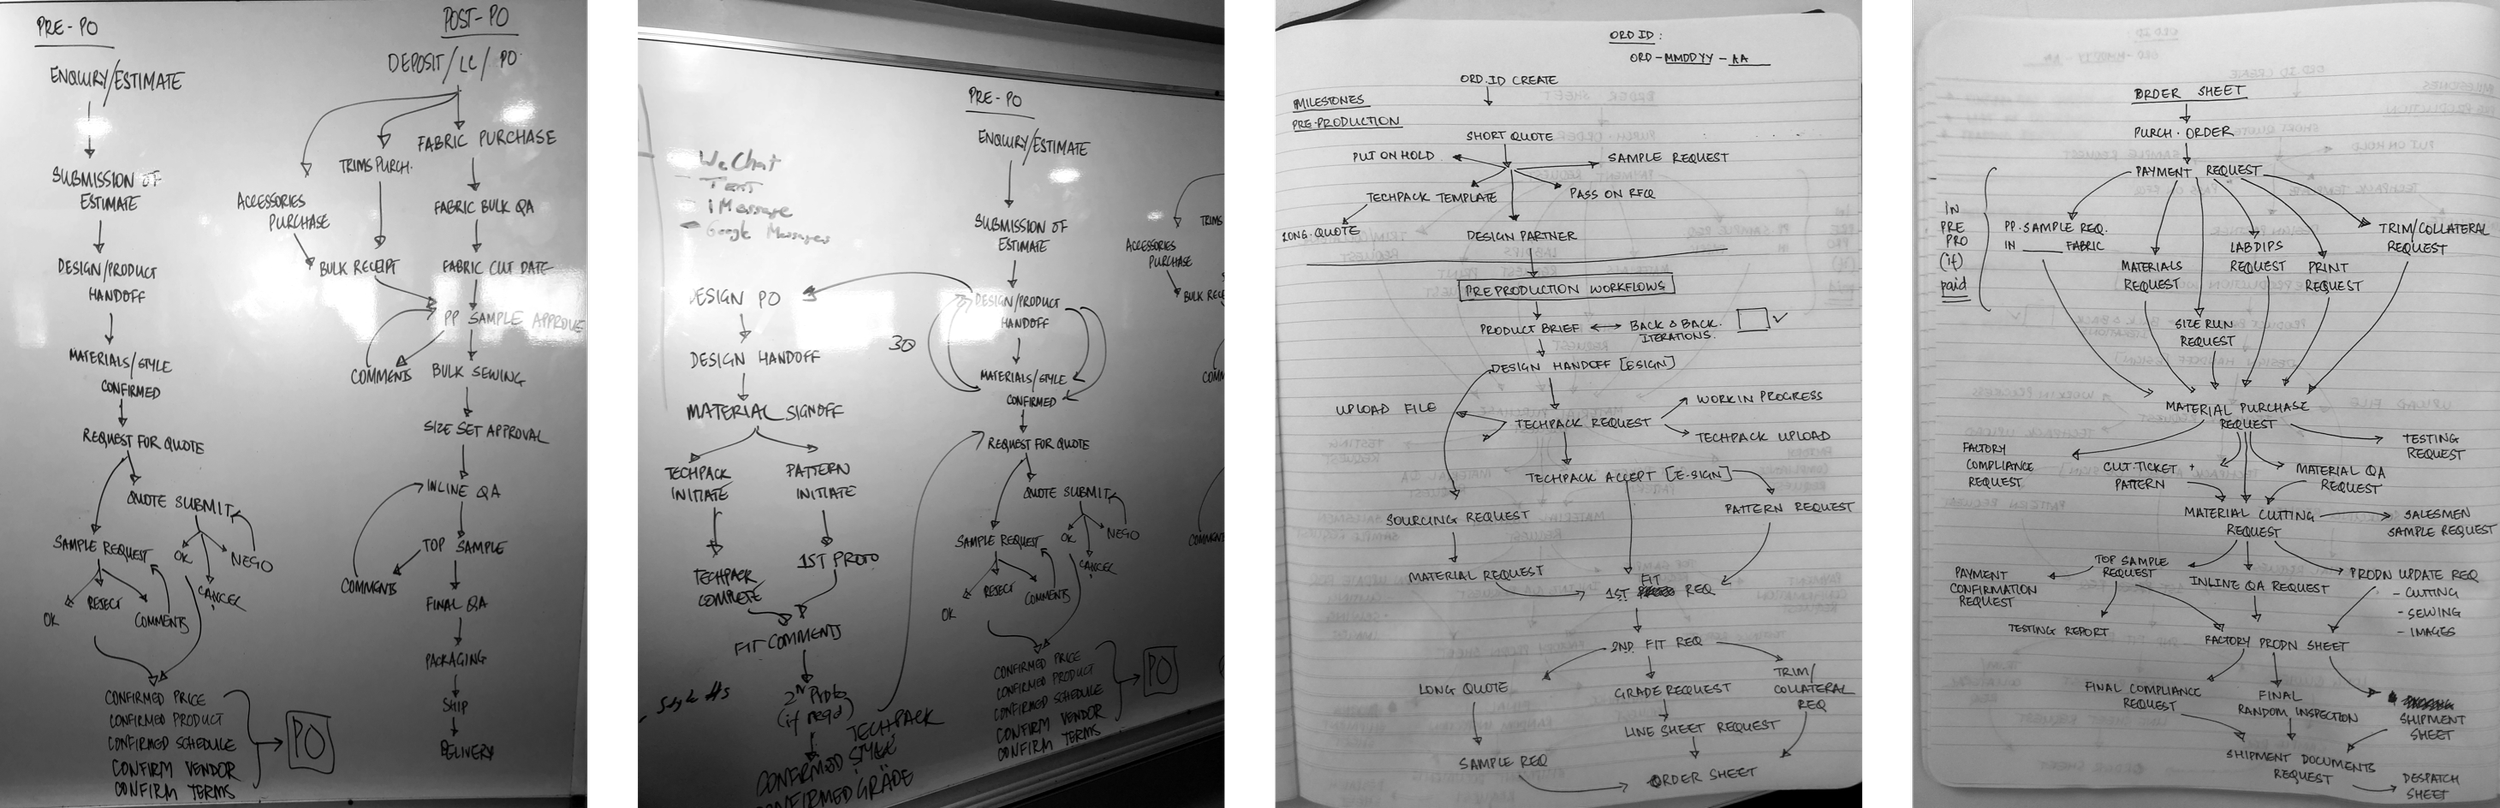 PRE-PO
ENQUIRY/ESTIMATE
SUBMISSION OF
ESTIMATE
DESIGN/PRODUCT
HANDOFF
MATERIALS/STYLE
CONFIRMED
REQUEST FOR QUOTE
QUOTE SUBMIT
SAMPLE REQUEST
OK
NEGO
CANCEL
OK
REJECT
COMMENTS
CONFIRMED PRICE
CONFIRMED PRODUCT
CONFIRMED SCHEDULE
CONFIRM VENDOR
CONFIRM TERMS
PO
POST-PO
DEPOSIT/LC/PO
FABRIC PURCHASE
TRIMS PURCH.
ACCESSORIES
PURCHASE
FABRIC BULK QA
BULK RECEIPT
FABRIC CUT DATE
PP SAMPLE APPROVE
COMMENTS
BULK SEWING
SIZE SET APPROVAL
INLINE QA
TOP SAMPLE
COMMENTS
FINAL QA
PACKAGING
SHIP
DELIVERY
- WeChat
- Text
- iMessage
- Google Messages
DESIGN PO
DESIGN HANDOFF
MATERIAL SIGNOFF
TECHPACK
INITIATE
PATTERN
INITIATE
TECHPACK
COMPLETE
1ST PROTO
FIT COMMENTS
2ND Proto
(if reqd)
- Style #s
TECHPACK
CONFIRMED STYLE
CONFIRMED GRADE
30
PRE-PO
ENQUIRY/ESTIMATE
SUBMISSION OF
ESTIMATE
DESIGN/PRODUCT
HANDOFF
MATERIALS/STYLE
CONFIRMED
REQUEST FOR QUOTE
QUOTE SUBMIT
SAMPLE REQUEST
OK
NEGO
CANCEL
OK
REJECT
COMMENTS
CONFIRMED PRICE
CONFIRMED PRODUCT
CONFIRMED SCHEDULE
CONFIRM VENDOR
CONFIRM TERMS
PO
TRIMS
ACCESSORIES
PURCHASE
BULK RECE
COMM
COMMENTS
ORD ID:
ORD-MMDDYY-AA
ORD.ID CREATE
MILESTONES
PRE-PRODUCTION
SHORT QUOTE
PUT ON HOLD
SAMPLE REQUEST
TECHPACK TEMPLATE
PASS ON RFQ
LONG.QUOTE
DESIGN PARTNER
PREPRODUCTION WORKFLOWS
PRODUCT BRIEF
BACK & BACK.
ITERATIONS.
DESIGN HANDOFF [ESIGN]
UPLOAD FILE
WORK IN PROGRESS
TECHPACK REQUEST
TECHPACK UPLOAD
TECHPACK ACCEPT [E-SIGN]
SOURCING REQUEST
PATTERN REQUEST
MATERIAL REQUEST
1ST FIT REQ
2ND FIT REQ
LONG QUOTE
GRADE REQUEST
TRIM/
COLLATERAL
REQ
LINE SHEET REQUEST
SAMPLE REQ
ORDER SHEET
ORDER SHEET
PURCH. ORDER
PAYMENT REQUEST
IN
PRE
PRO
(if)
paid
PP. SAMPLE REQ.
IN ____ FABRIC
MATERIALS
REQUEST
SIZE RUN
REQUEST
LABDIPS
REQUEST
PRINT
REQUEST
TRIM/COLLATERAL
REQUEST
MATERIAL PURCHASE
REQUEST
FACTORY
COMPLIANCE
REQUEST
CUT.TICKET +
PATTERN
MATERIAL QA
REQUEST
TESTING
REQUEST
MATERIAL CUTTING
REQUEST
SALESMEN
SAMPLE REQUEST
TOP SAMPLE
REQUEST
PAYMENT
CONFIRMATION
REQUEST
INLINE QA REQUEST
PRODN UPDATE REQ
- CUTTING
- SEWING
- IMAGES
TESTING REPORT
FACTORY PRODN SHEET
FINAL COMPLIANCE
REQUEST
FINAL
RANDOM INSPECTION
SHIPMENT
SHEET
SHIPMENT DOCUMENTS
REQUEST
DESPATCH
SHEET